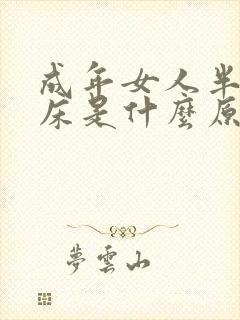 成年女人半
床是什麼原
夢雲山